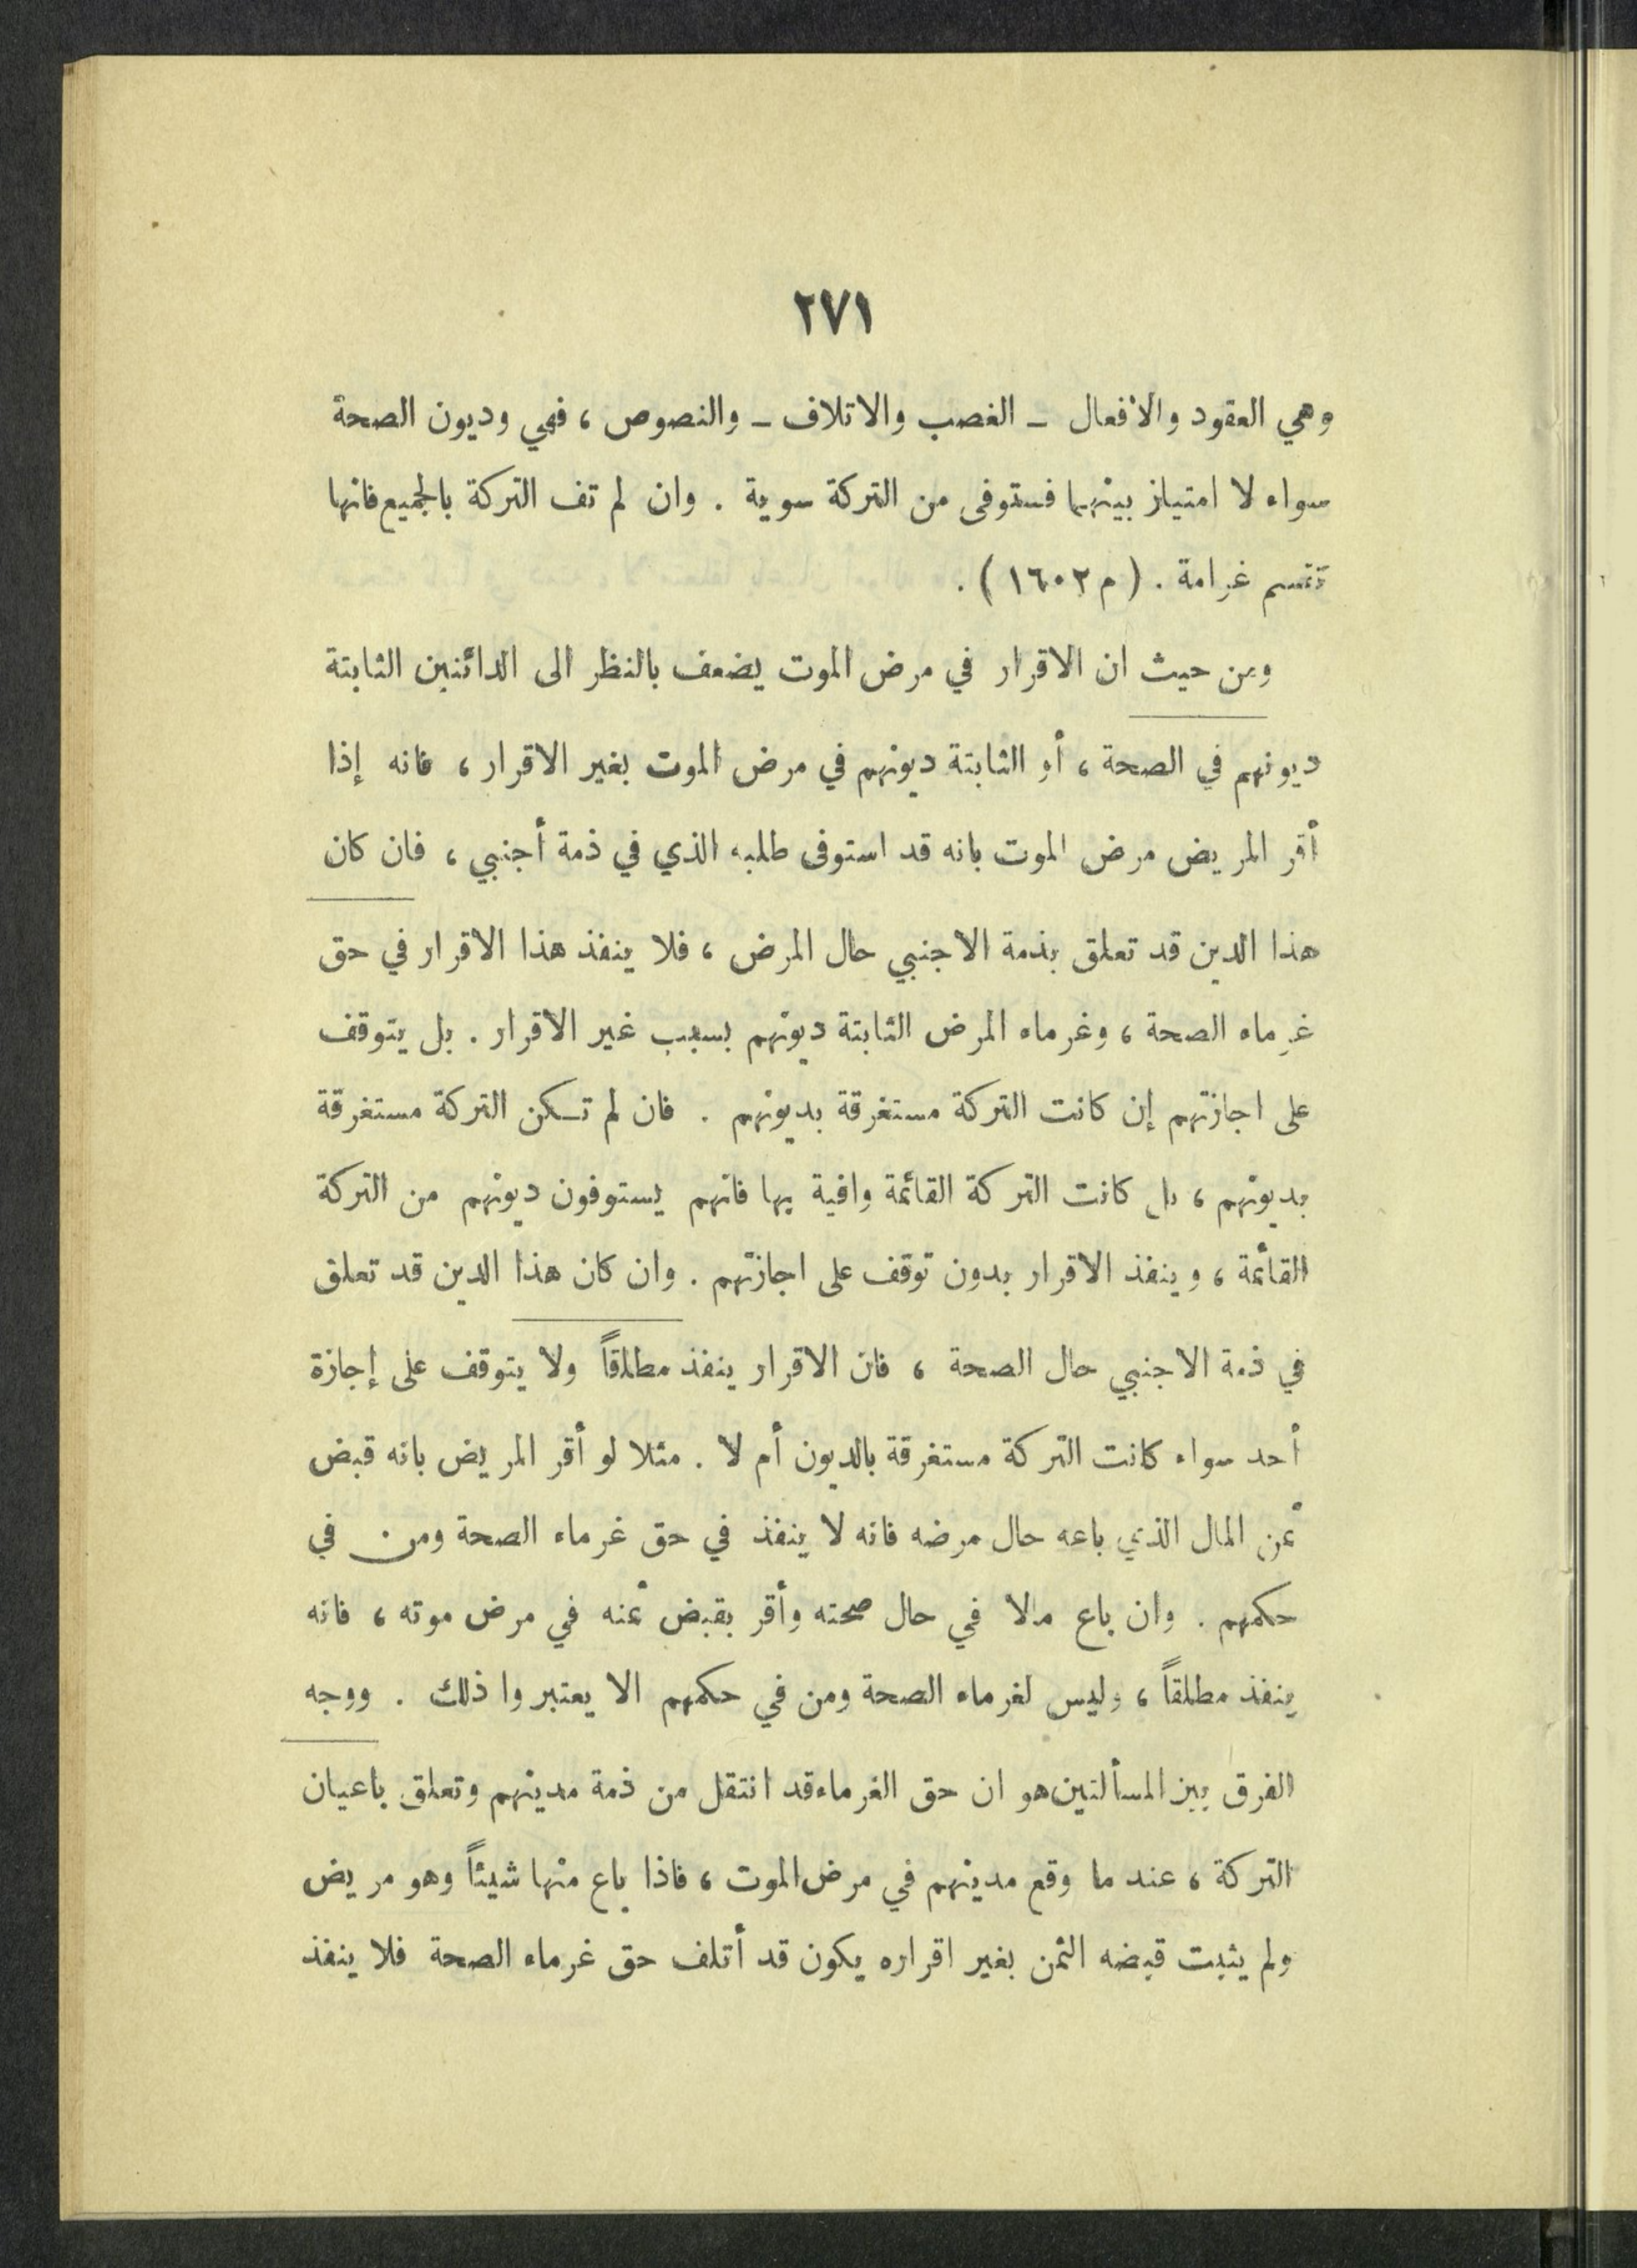 ٢٧١
وهي العقود والافعال ـ الغصب والاتلاف ـ والنصوص ، فهي وديون الصحة
سواء لا امتياز بينهما فستوفى من التركة سوية . وان لم تف التركة بالجميع فانها
تقسم غرامة . ( م ١٦٠٢ ) .
ومن حيث ان الاقرار في مرض الموت يضعف بالنظر الى الدائنين الثابتة
ديونهم في الصحة ، أو الثابتة ديونهم في مرض الموت بغير الاقرار ، فانه إذا
أقر المريض مرض الموت بانه قد استوفى طلبه الذي في ذمة أجنبي ، فان كان
هذا الدين قد تعلق بذمة الاجنبي حال المرض ، فلا ينفذ هذا الاقرار في حق
غرماء الصحة ، وغرماء المرض الثابتة ديونهم بسبب غير الاقرار . بل يتوقف
على اجازتهم إن كانت التركة مستغرقة بديونهم . فان لم تكن التركة مستغرقة
بديونهم ، بل كانت التركة القائمة وافية بها فانهم يستوفون ديونهم من التركة
القائمة ، وينفذ الاقرار بدون توقف على اجازتهم . وان كان هذا الدين قد تعلق
في ذمة الاجنبي حال الصحة ، فان الاقرار ينفذ مطلقاً ولا يتوقف على إجازة
أحد سواء كانت التركة مستغرقة بالديون أم لا . مثلا لو أقر المريض بانه قبض
ثمن المال الذي باعه حال مرضه فانه لا ينفذ في حق غرماء الصحة ومن في
حكمهم . وان باع مالا في حال صحته وأقر بقبض ثمنه في مرض موته ، فانه
ينفذ مطلقاً ، وليس لغرماء الصحة ومن في حكمهم الا يعتبروا ذلك . ووجه
الفرق بين المسألتين هو ان حق الغرماء قد انتقل من ذمة مدينهم وتعلق باعيان
التركة ، عند ما وقع مدينهم في مرض الموت ، فاذا باع منها شيئاً وهو مريض
ولم يثبت قبضه الثمن بغير اقراره يكون قد أتلف حق غرماء الصحة فلا ينفذ